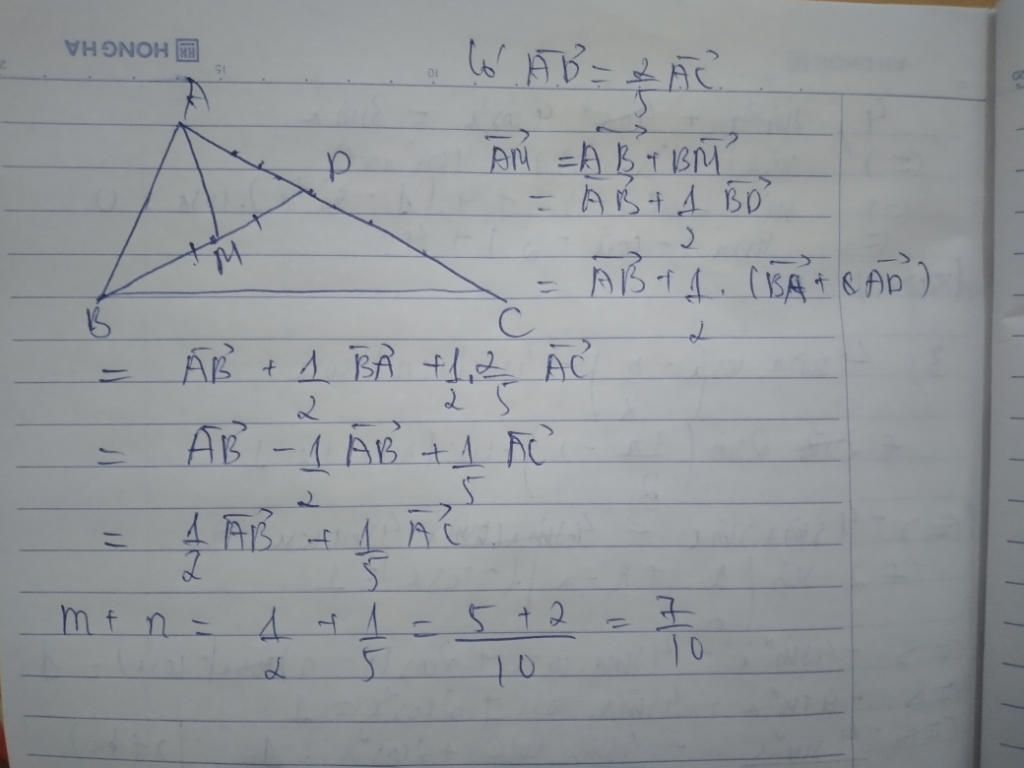 HONG HA
15
10
Có AD→ = 2/5 AC→
A
D
M
B
C
AM→ = AB→ + BM→
= AB→ + 1/2 BD→
= AB→ + 1/2 . (BA→ + AD→)
= AB→ + 1/2 BA→ + 1/2 . 2/5 AC→
= AB→ - 1/2 AB→ + 1/5 AC→
= 1/2 AB→ + 1/5 AC→
m + n = 1/2 + 1/5 = (5 + 2)/10 = 7/10